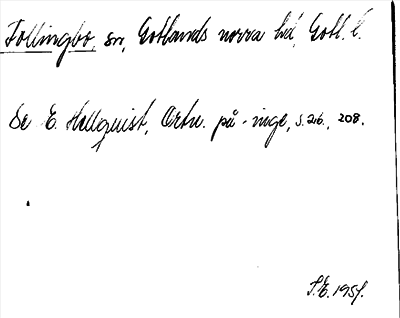 Follingbo, sn, Gotlands norra hd, Gotl. l.
Se E. Hellquist, Ortn. på -inge, s. 26., 208.
S.E. 1951.